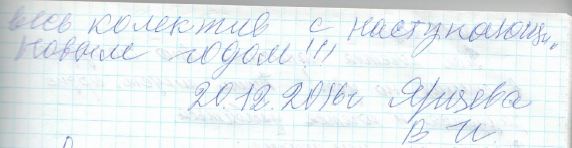 весь колектив с наступающи
Новым годом!!!
20.12.2016г Ярцева
В И.